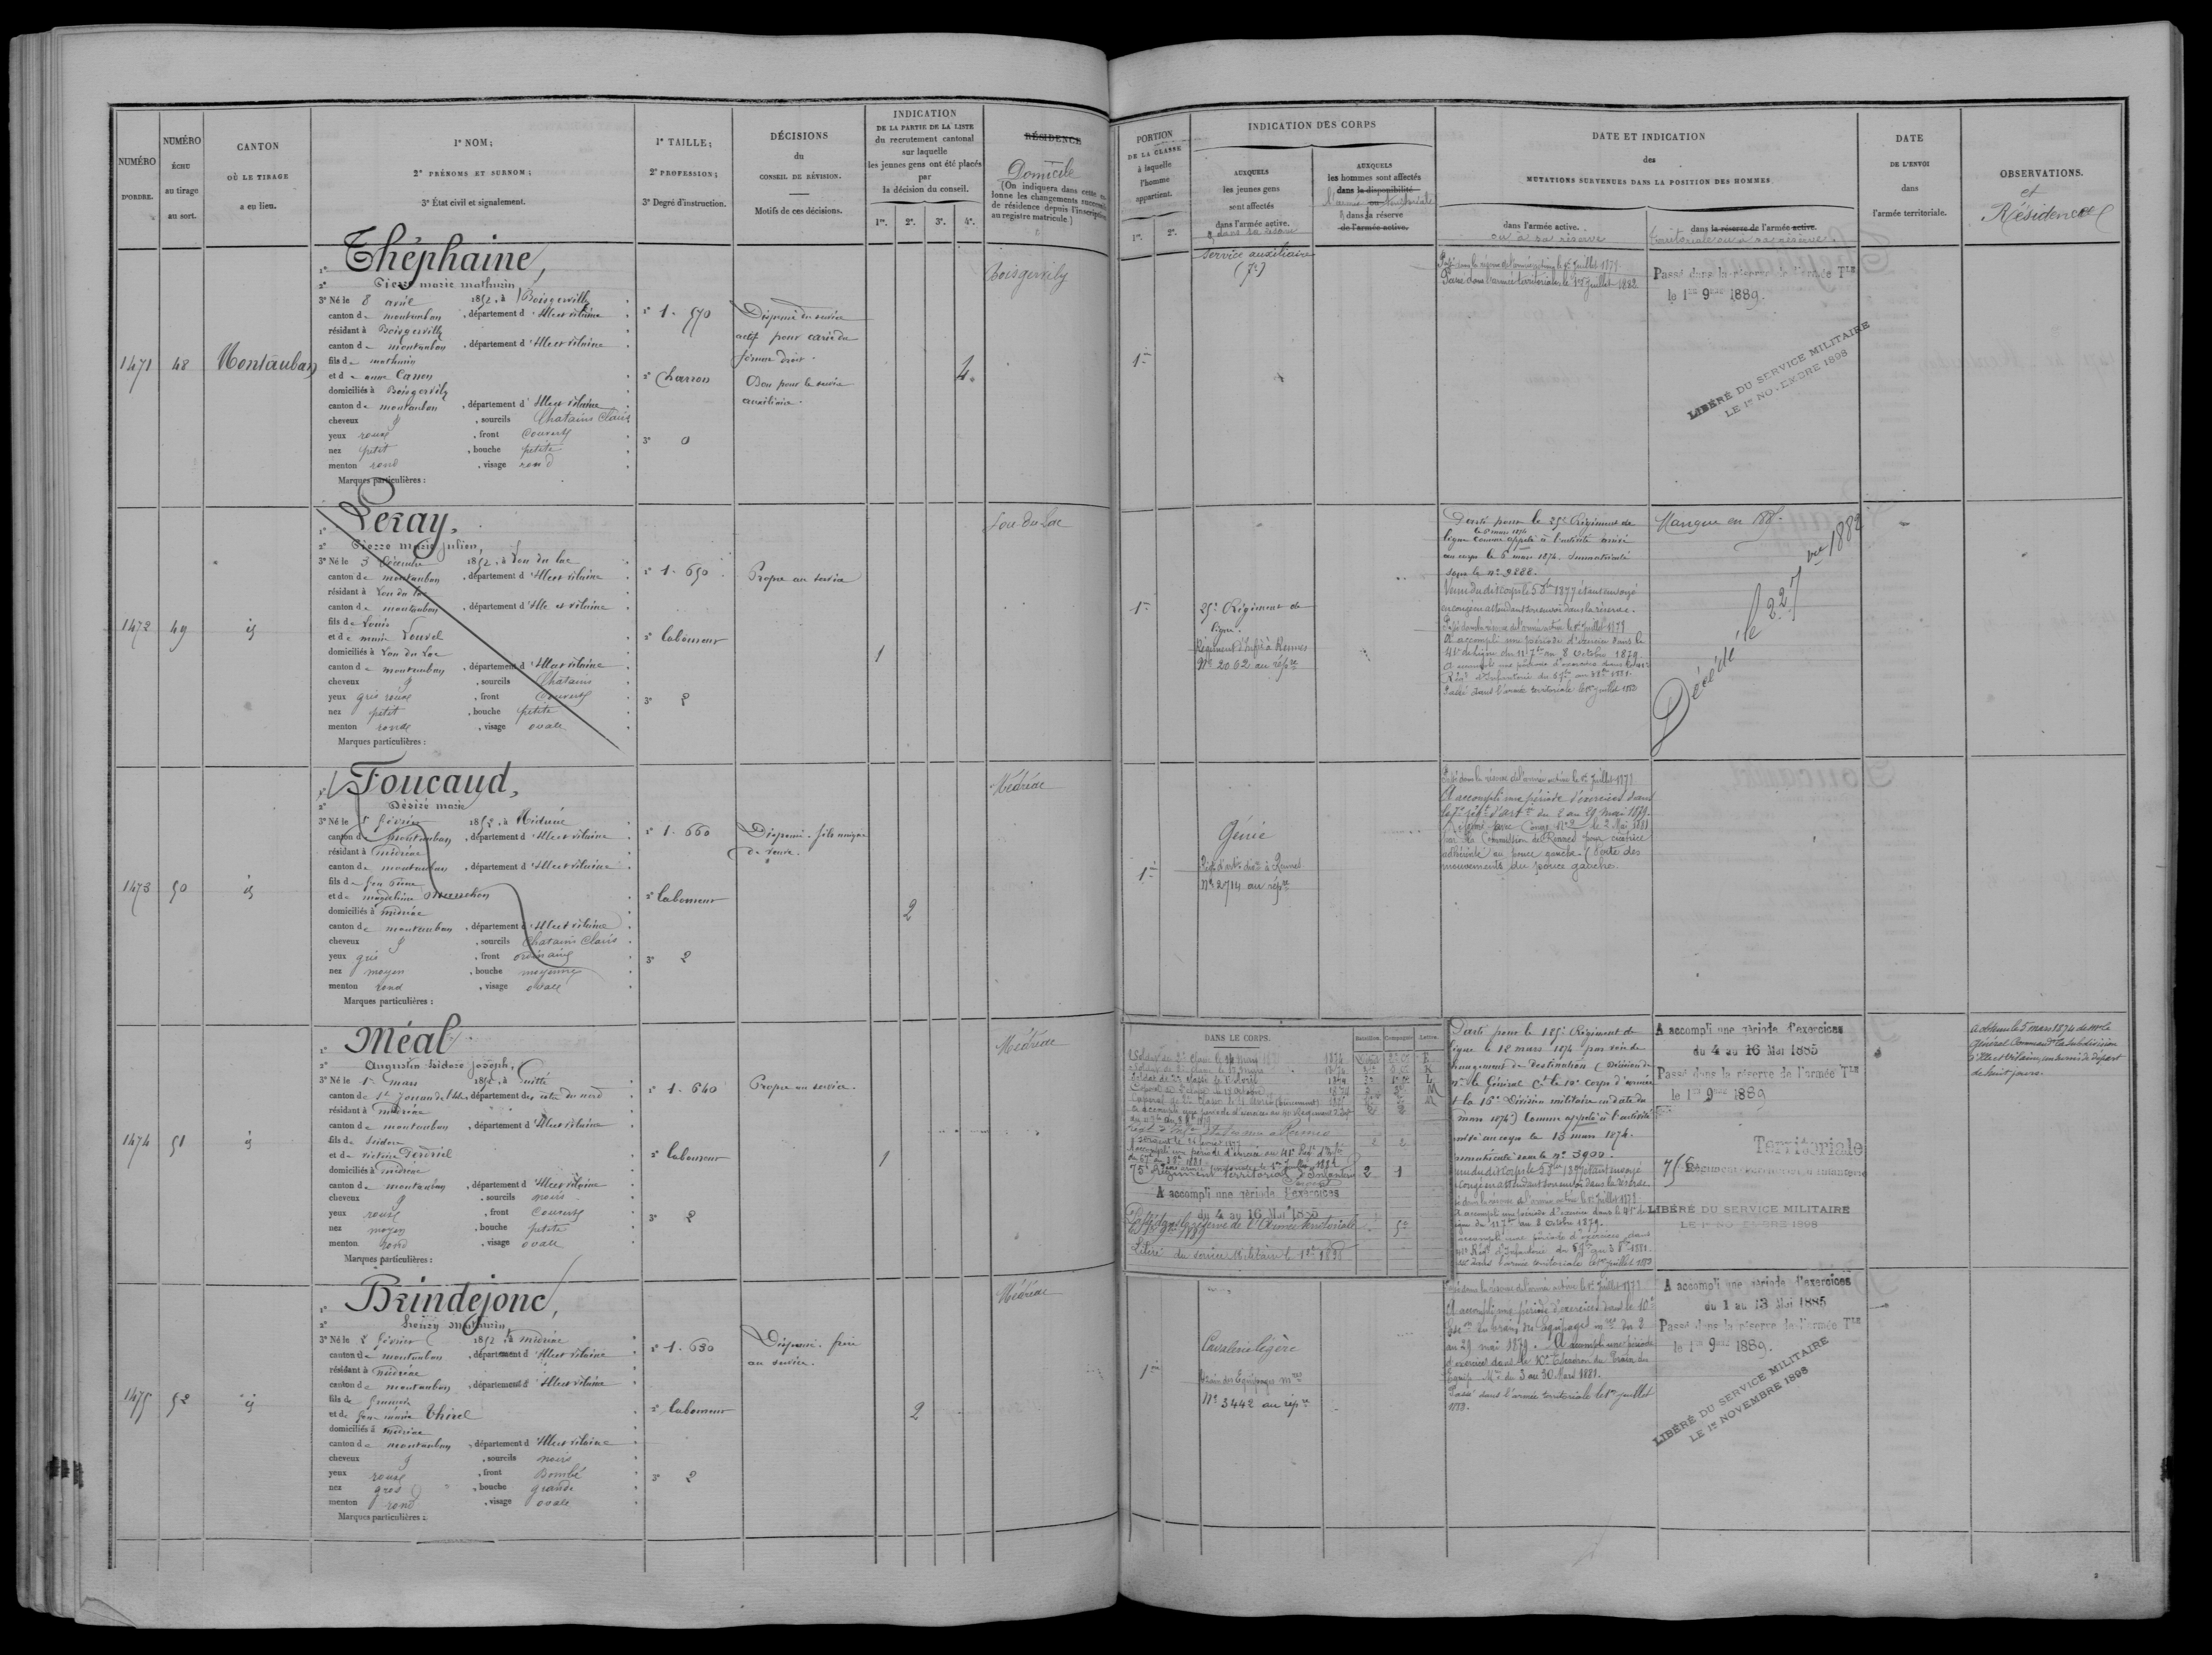 NUMÉRO
D'ORDRE.
NUMÉRO
ÉCHU
au tirage
au sort.
CANTON
OÙ LE TIRAGE
a eu lieu.
1° NOM;
2° PRÉNOMS ET SURNOM;
3° État civil et signalement.
1° TAILLE;
2° PROFESSION;
3° Degré d'instruction.
DÉCISIONS
du
CONSEIL DE RÉVISION.
Motifs de ces décisions.
INDICATION
DE LA PARTIE DE LA LISTE
du recrutement cantonal
sur laquelle
les jeunes gens ont été placés
par
la décision du conseil.
1re. 2e. 3e. 4e.
RÉSIDENCE
Domicile
[On indiquera dans cette co-
lonne les changements successifs
de résidence depuis l'inscription
au registre matricule]
PORTION
DE LA CLASSE
à laquelle
l'homme
appartient.
1re. 2e.
INDICATION DES CORPS
AUXQUELS
les jeunes gens
sont affectés
dans l'armée active.
& dans sa réserve
AUXQUELS
les hommes sont affectés
dans la disponibilité
l'armée ou territoriale
& dans sa réserve
de l'armée active.
DATE ET INDICATION
des
MUTATIONS SURVENUES DANS LA POSITION DES HOMMES
dans l'armée active.
ou à sa réserve
dans la réserve de l'armée active.
territoriale ou à sa réserve.
DATE
DE L'ENVOI
dans
l'armée territoriale.
OBSERVATIONS.
et
Résidences
1471
48
Montauban
1° Théphaine,
2° Pierre marie mathurin
3° Né le 8 avril 1852, à Boisgervilly
canton de montauban, département d'Ille et vilaine
résidant à Boisgervilly
canton de montauban, département d'Ille et vilaine
fils de mathurin
et de anne Canon
domiciliés à Boisgervilly
canton de montauban, département d'Ille et vilaine
cheveux &, sourcils Chatains Clairs
yeux roux, front Couvert
nez petit, bouche petite
menton rond, visage rond
Marques particulières :
1° 1.570
2° Charron
3° 0
Dispensé du service
actif pour carie du
fémur droit.
Bon pour le service
auxiliaire.
4.
Boisgervily
1re
Service auxiliaire
(7e)
Passé dans la réserve de l'armée active le 1er Juillet 1879
Passé dans l'armée territoriale le 1er Juillet 1882
Passé dans la réserve de l'armée Tle
le 1er 9bre 1889.
LIBÉRÉ DU SERVICE MILITAIRE
LE 1er NOVEMBRE 1898
1472
49
id
1° Leray,
2° Pierre marie julien,
3° Né le 3 Décembre 1852, à Lou du lac
canton de montauban, département d'Ille et vilaine
résidant à Lou du lac
canton de montauban, département d'Ille et vilaine
fils de Louis
et de marie Louvel
domiciliés à Lou du Lac
canton de montauban, département d'Ille et vilaine
cheveux &, sourcils Chatains
yeux gris roux, front Couvert
nez petit, bouche petite
menton rond, visage ovale
Marques particulières :
1° 1.650
2° laboureur
3° 2
Propre au service
1
Lou-du-Lac
1re
25e Régiment de
ligne.
Régiment d'Infie à Rennes
No 2062 au répre
Parti pour le 25e Régiment de
ligne comme appelé à l'activité arrivé
au corps le 6 mars 1874. Immatriculé
sous le no 9288.
en congé en attendant son envoi dans la réserve.
Passé dans la réserve de l'armée active le 1er Juillet 1879
A accompli une période d'exercices dans le
41e de ligne du 11 7bre au 8 Octobre 1879.
Passé dans l'armée territoriale le 1er juillet 1882
Manque en
Décédé le 22 1882
1473
50
id
1° Foucaud,
2° Désiré marie
3° Né le 5 février 1852, à Médréac
canton de montauban, département d'Ille et vilaine
résidant à médréac
canton de montauban, département d'Ille et vilaine
fils de feu Pierre
et de magdeleine
domiciliés à médréac
canton de montauban, département d'Ille et vilaine
cheveux &, sourcils Chatains Clairs
yeux gris, front ordinaire
nez moyen, bouche moyenne
menton rond, visage ovale
Marques particulières :
1° 1.660
2° laboureur
3° 2
Dispensé. fils unique
de veuve.
2
Médréac
1re
Génie
No 2714 au répre
Passé dans la réserve de l'armée active le 1er Juillet 1879
A accompli une période d'exercices dans
le 7e régt d'artie du 2 au 29 mai 1879.
Réformé par Congé No 2 le 2 Mai 1881
par la Commission de Rennes pour cicatrice
adhérente au pouce gauche (Perte des
mouvements du pouce gauche.
1474
51
id
1° Méal
2° Augustin Isidore Joseph,
3° Né le 1er mars 1852, à Guitté
canton de St Jouan de l'Isle, département des côtes du nord
résidant à médréac
canton de montauban, département d'Ille et vilaine
fils de Isidore
et de victoire
domiciliés à médréac
canton de montauban, département d'Ille et vilaine
cheveux &, sourcils noirs
yeux roux, front Couvert
nez moyen, bouche petite
menton rond, visage ovale
Marques particulières :
1° 1.640
2° laboureur
3° 2
Propre au service.
1
Médréac
DANS LE CORPS. Bataillon. Compagnie. Lettre.
75e Régiment Territorial d'Infanterie 2 1
A accompli une période d'exercices
du 4 au 16 Mai 1885
Passé dans la réserve de l'Armée territoriale
Libéré du service Militaire le 1er 9bre 1898
Parti pour le 125e Régiment de
ligne le 12 mars 1874 par voie de
changement de destination (Décision de
Mr le Général Ct le 10e corps d'armée
et la 16e Division militaire en date du
mars 1874) Comme appelé à l'activité
arrivé au corps le 13 mars 1874.
immatriculé sous le no 3900.
A accompli une période d'exercices dans le 41e de
ligne du 11 7bre au 8 Octobre 1879.
Passé dans l'armée territoriale le 1er juillet 1882
A accompli une période d'exercices
du 4 au 16 Mai 1885
Passé dans la réserve de l'armée Tle
le 1er 9bre 1889
Territoriale
75e Régiment territorial d'infanterie
LIBÉRÉ DU SERVICE MILITAIRE
LE 1er NOVEMBRE 1898
A obtenu le 5 mars 1874 de Mr le
Général Commandt la subdivision
d'Ille et Vilaine, un sursis de départ
de huit jours.
1475
52
id
1° Brindejonc,
2° Henry Mathurin
3° Né le 2 février 1852, à médréac
canton de montauban, département d'Ille et vilaine
résidant à médréac
canton de montauban, département d'Ille et vilaine
fils de
et de feue marie Thirel
domiciliés à médréac
canton de montauban, département d'Ille et vilaine
cheveux &, sourcils noirs
yeux roux, front Bombé
nez gros, bouche grande
menton rond, visage ovale
Marques particulières :
1° 1.630
2° laboureur
3° 2
Dispensé. frère
au service.
2
Médréac
1re
Cavalerie légère
Train des Équipages mres
No 3442 au répre
Passé dans la réserve de l'armée active le 1er Juillet 1879
A accompli une période d'exercices dans le 10e
Esc on du train des équipages mres du 2
au 29 mai 1879. A accompli une période
d'exercices dans le 10e Escadron du Train des
Equip. Mres du 3 au 30 Mars 1881.
Passé dans l'armée territoriale le 1er juillet
1882.
A accompli une période d'exercices
du 1 au 13 Mai 1885
Passé dans la réserve de l'armée Tle
le 1er 9bre 1889.
LIBÉRÉ DU SERVICE MILITAIRE
LE 1er NOVEMBRE 1898